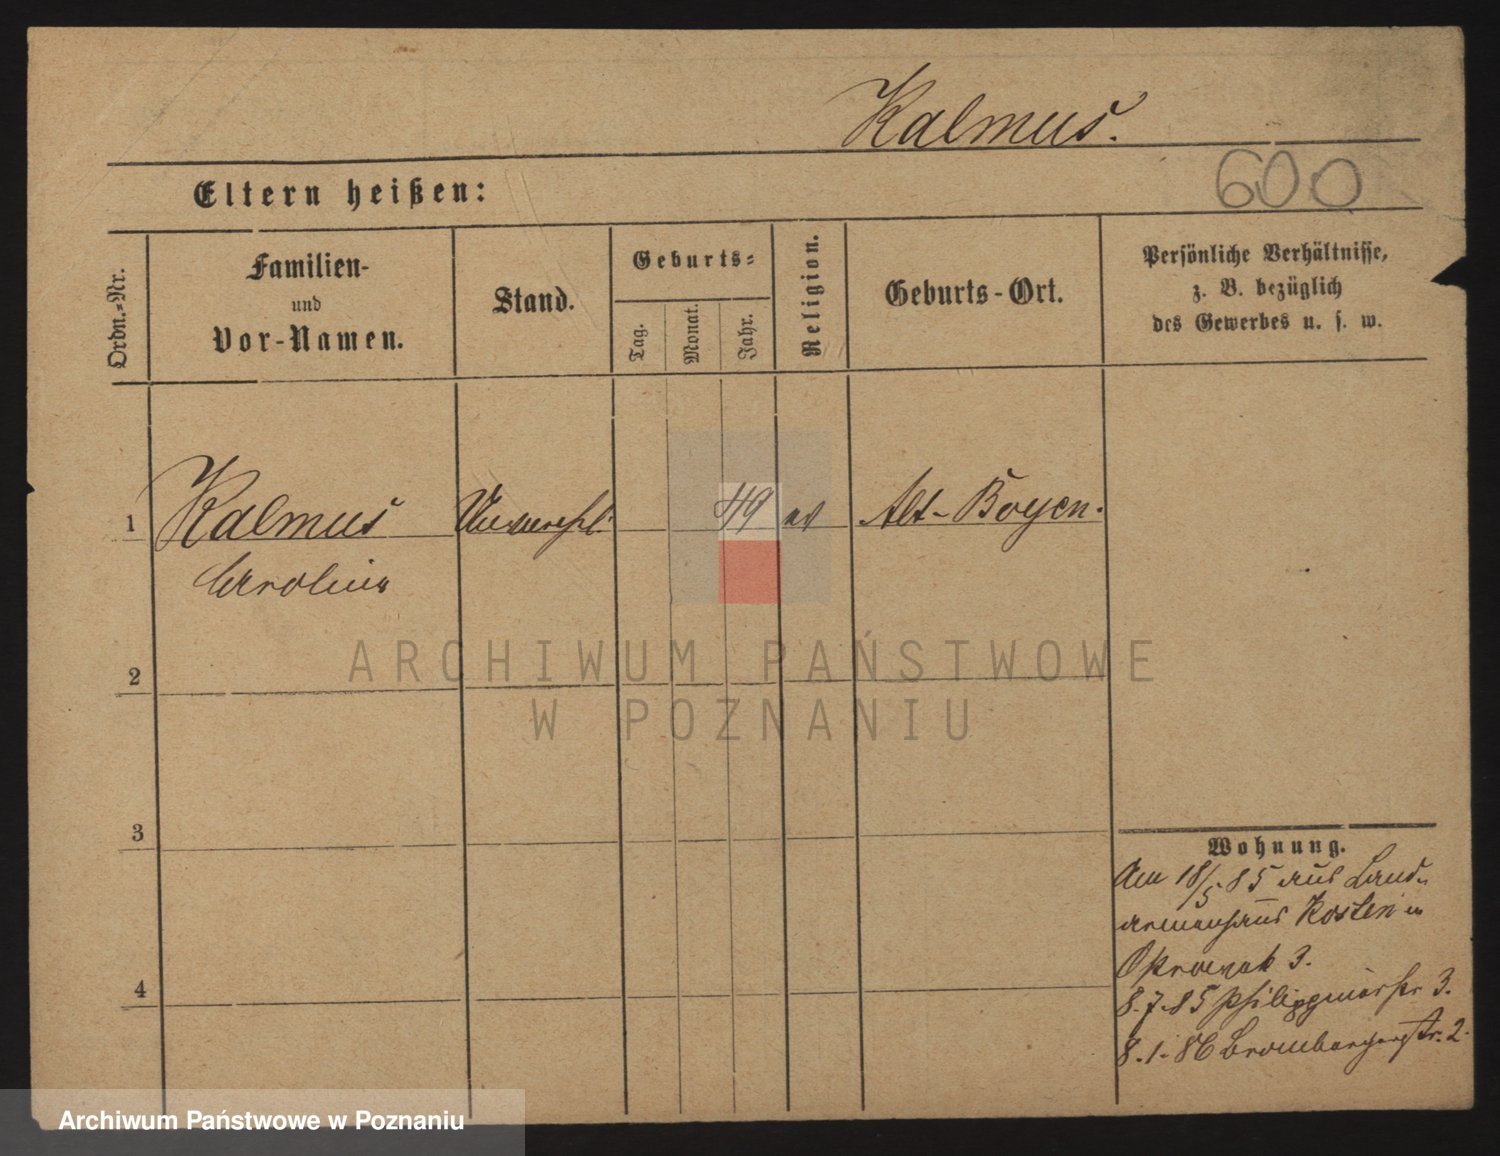 Kalmus.
600
Eltern heißen:
Ordn.-Nr.
Familien-
und
Vor-Namen.
Stand.
Geburts-
Tag.
Monat.
Jahr.
Religion.
Geburts-Ort.
Persönliche Verhältnisse,
z. B. bezüglich
des Gewerbes u. s. w.
1 Kalmus Unverehl. 49 Alt-Boyen.
Caroline
2
3
4
Wohnung.
Am 18/5 85 aus Land-
armenhaus Kosten in
3.
8.-7.-85 3.
8.-1.-86 Brombergerstr. 2.
ARCHIWUM PAŃSTWOWE
W POZNANIU
Archiwum Państwowe w Poznaniu